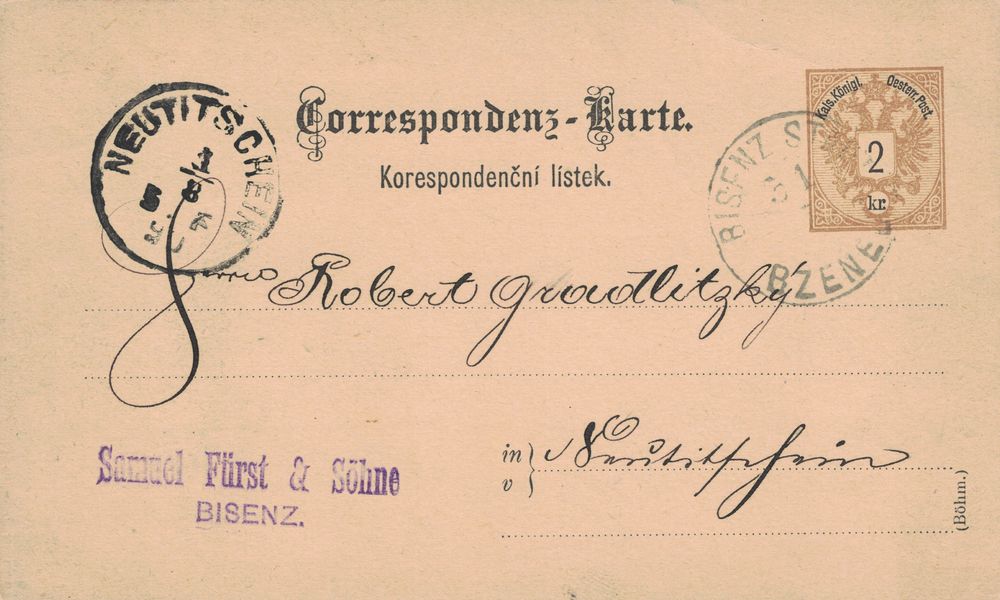 Correspondenz-Karte.
Korespondenční lístek.
Kais. Königl. Oesterr. Post.
2
kr
NEUTITSCHEIN
BISENZ
BZENEC
Herrn Robert Gradlitzky
in
v
Neutitschein
Samuel Fürst & Söhne
BISENZ.
(Böhm.)